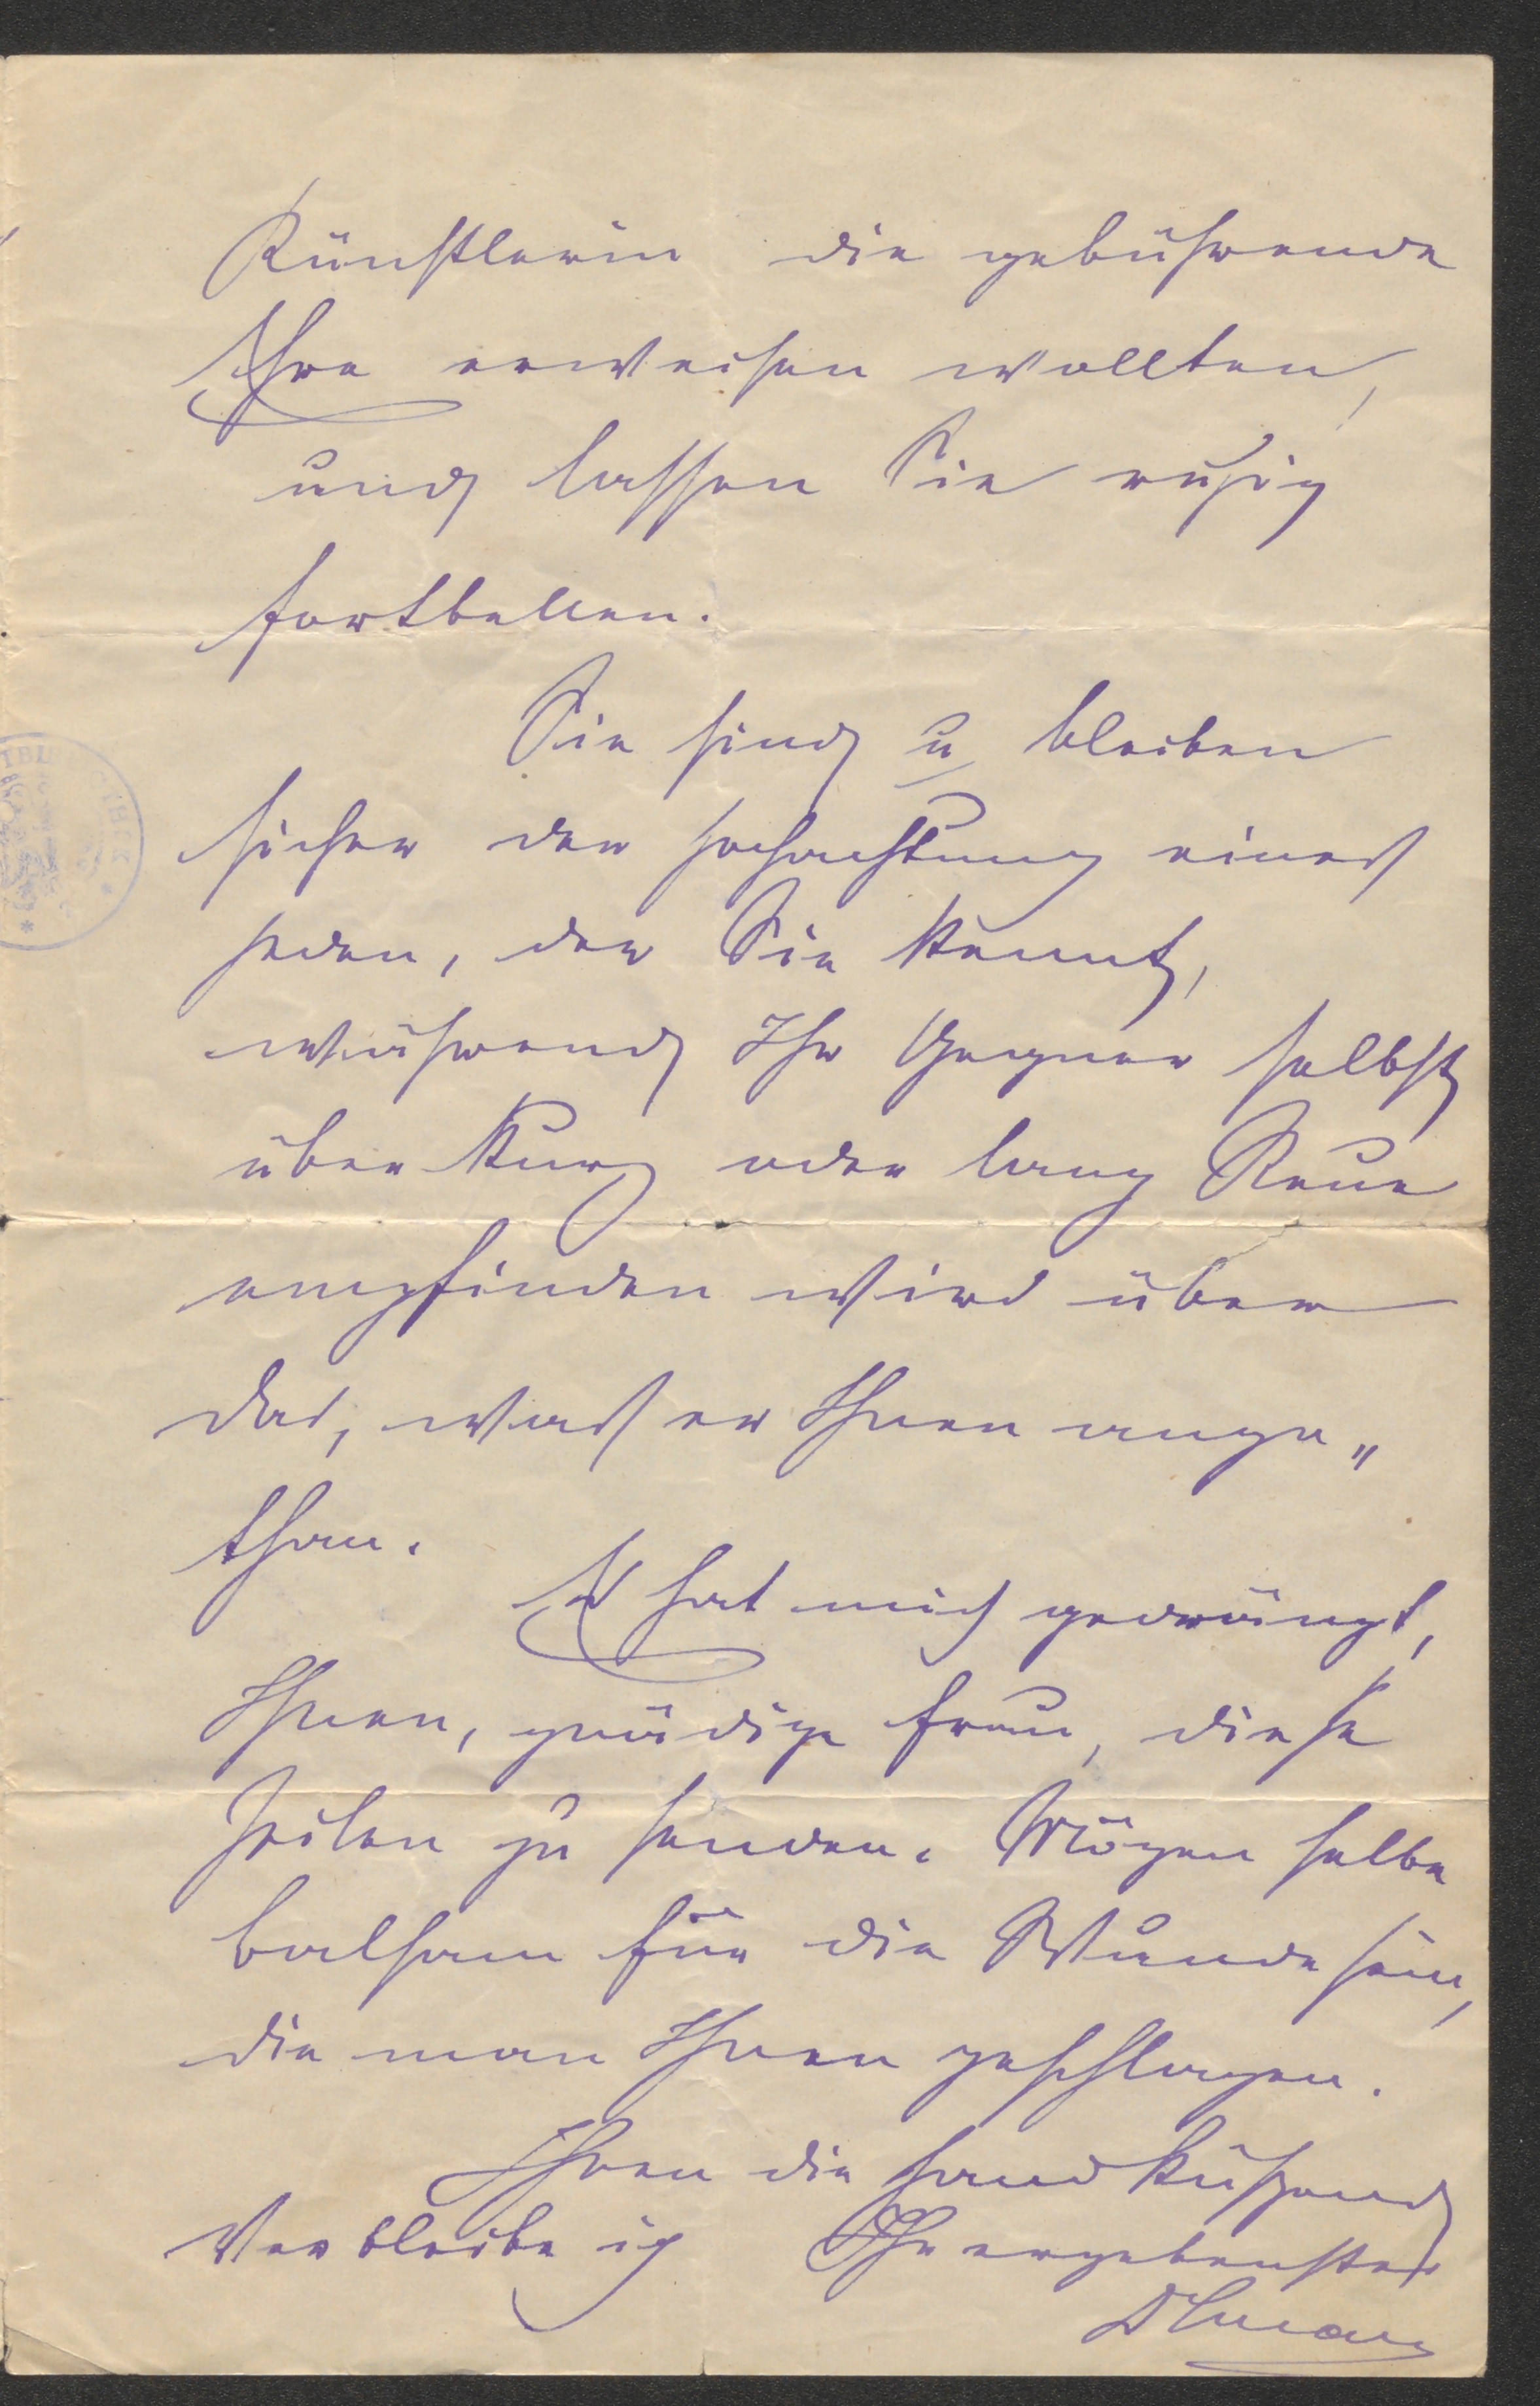 Künstlerin die gebührende
Ehre erweisen wollten,
und lassen Sie ruhig
fortbellen.
Sie sind u bleiben
sicher der Hochachtung eines
jeden, der Sie kennt,
während Ihr Gegner selbst
über kurz oder lang Reue
empfinden wird über
das, was er Ihnen ange„
than.
Es hat mich gedrängt,
Ihnen, gnädige Frau, diese
Zeilen zu senden. Mögen selbe
Balsam für die Wunde sein,
die man Ihnen geschlagen.
Ihnen die Hand küssend
verbleibe ich Ihr ergebenster